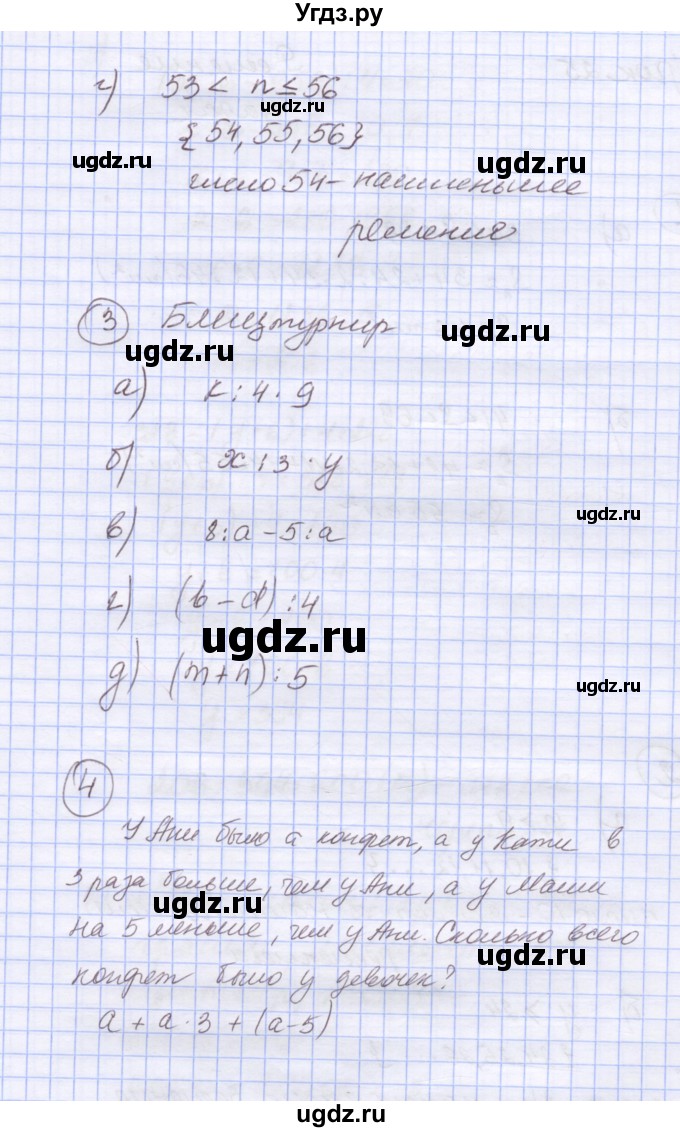 Угдз.ру
г) 53 < n ≤ 56
ugdz.ru
{54, 55, 56}
ugdz.ru
ugdz.ru
число 54 - наименьшее
ugdz.ru
решение
3 Блицтурнир
ugdz.ru
ugdz.ru
а) k : 4 · 9
б) x : 3 · y
ugdz.ru
в) 8 : a - 5 : a
г) (b - d) : 4
ugdz.ru
д) (m + n) : 5
ugdz.ru
4
У Ани было a конфет, а у Кати в
3 раза больше, чем у Ани, а у Маши
ugdz.ru
на 5 меньше, чем у Ани. Сколько всего
ugdz.ru
конфет было у девочек?
a + a · 3 + (a - 5)
ugdz.ru